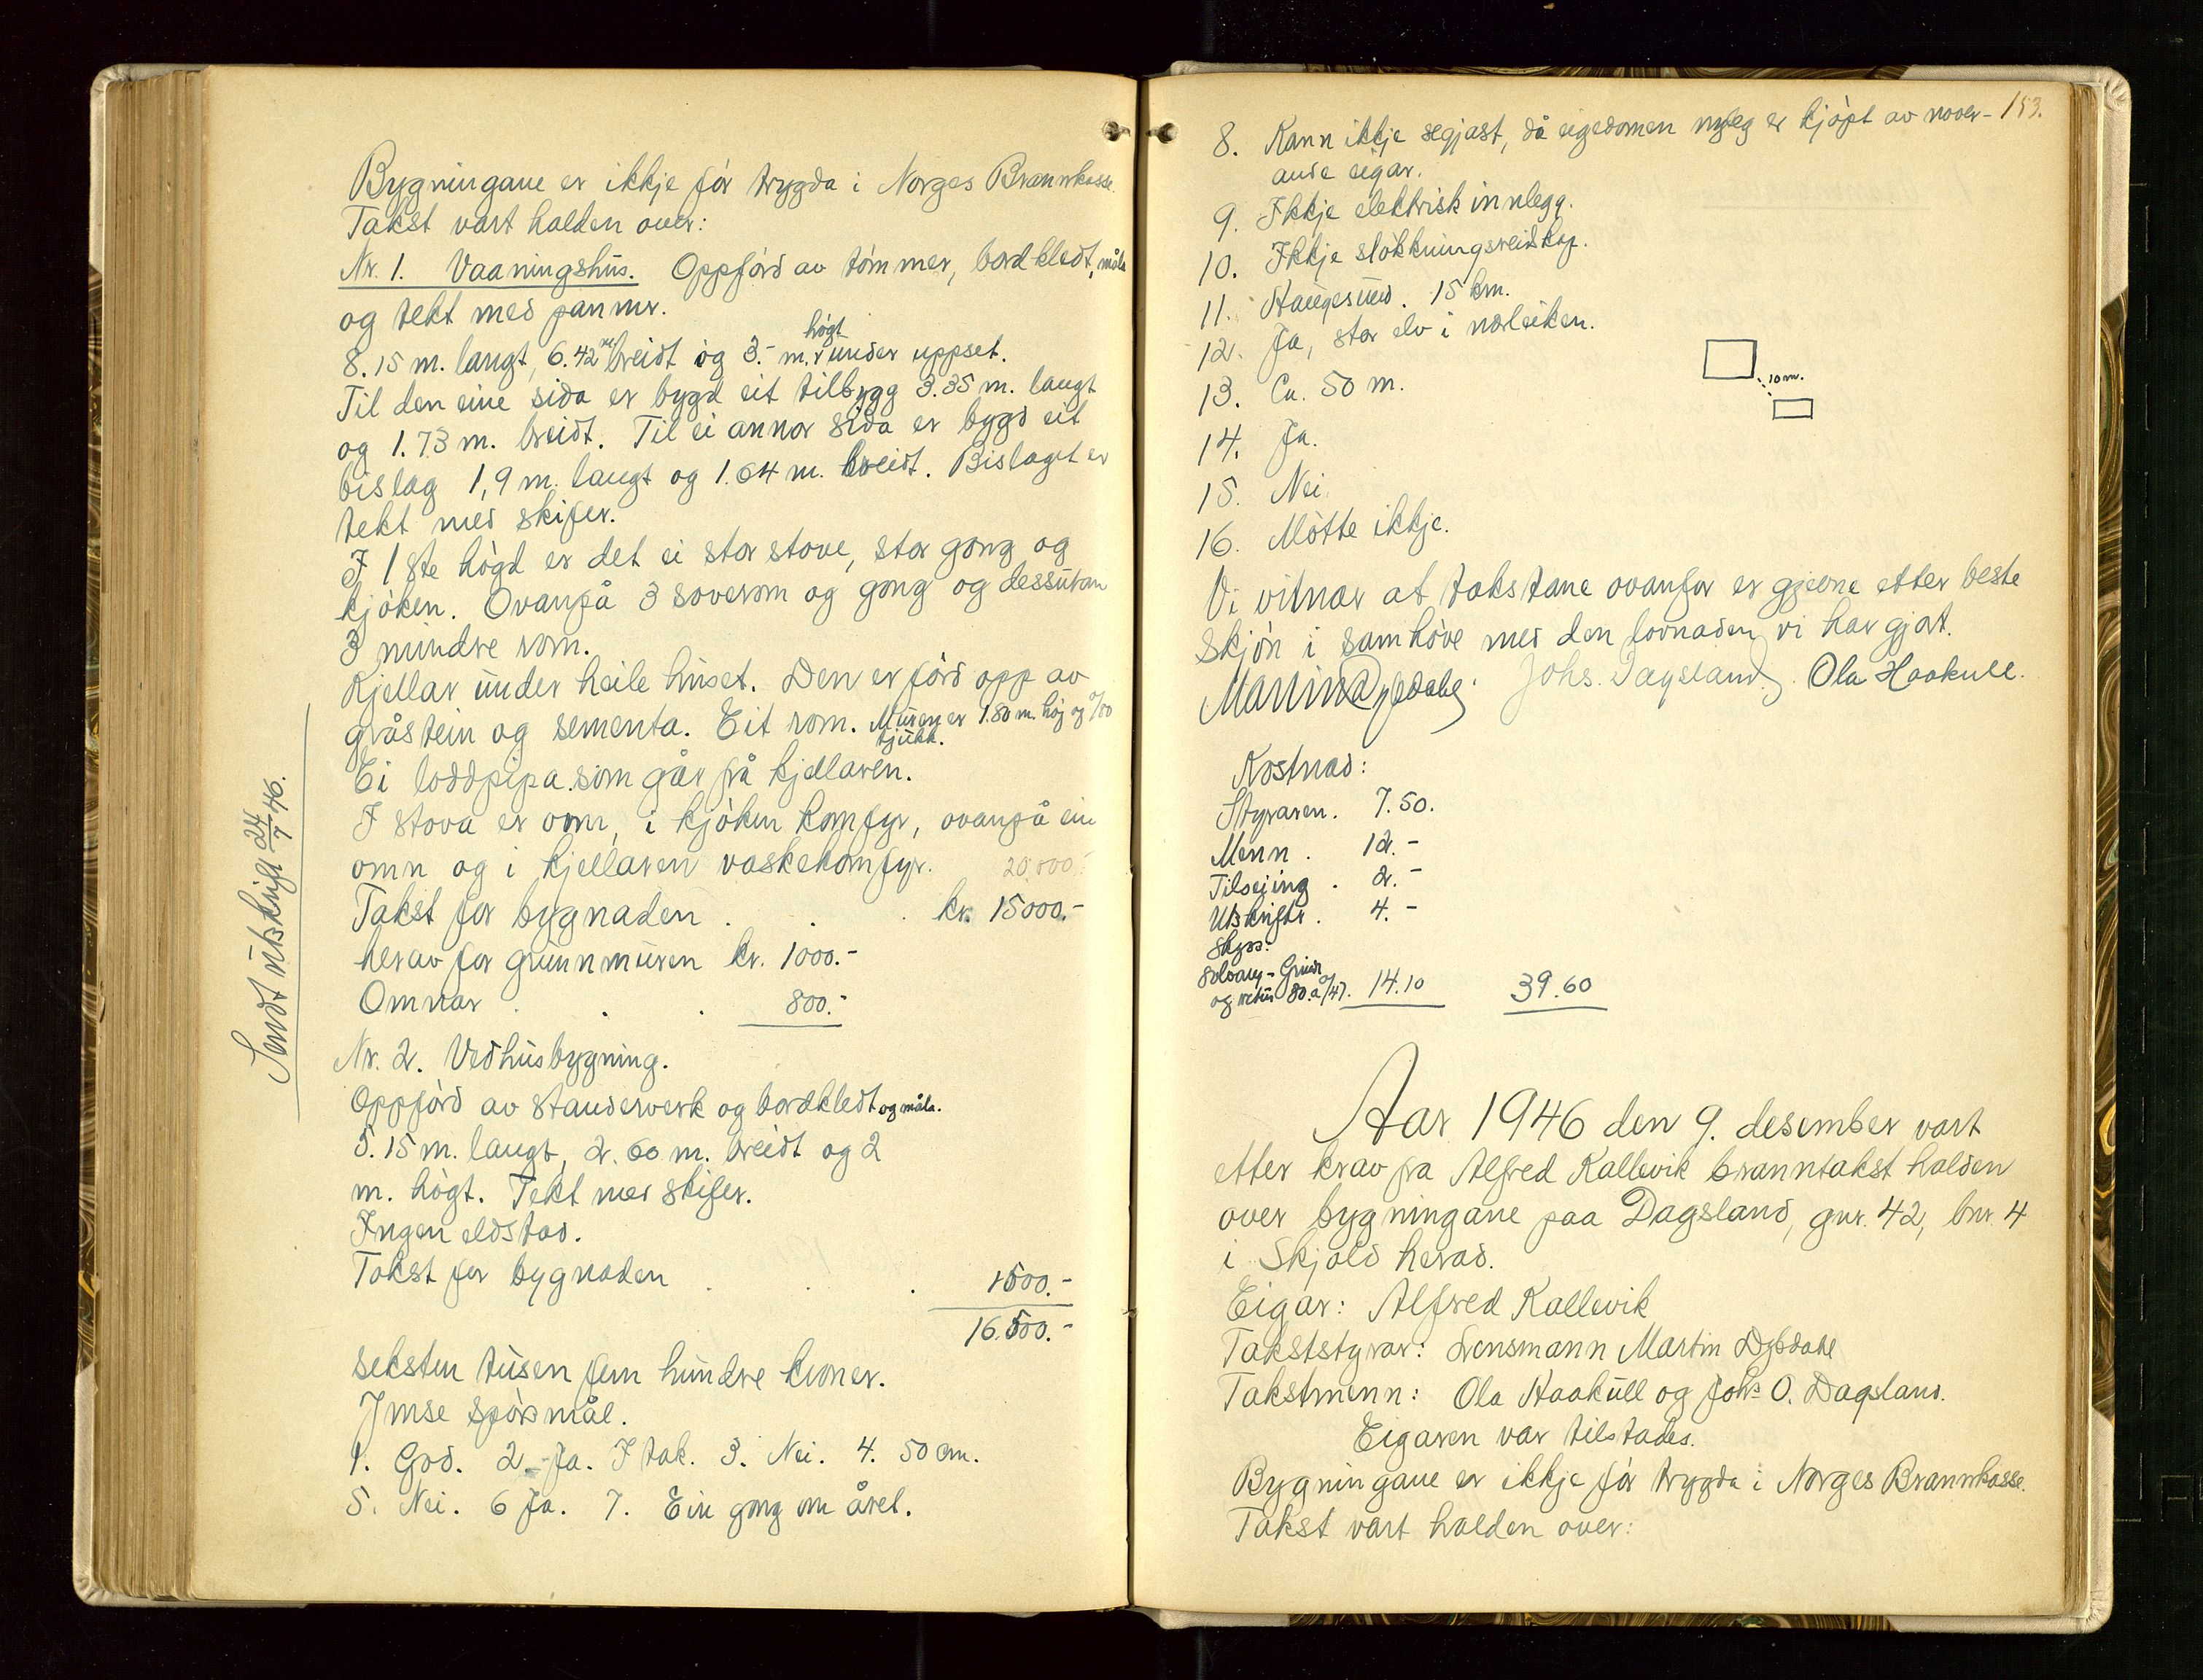 Bygningane er ikkje för trygda i Norges Brannkasse.
Takst vart halden over:
Nr. 1. Vaaningshus. Oppförd av tömmer, bordkledt, måla
og tekt med pannor.
8.15 m. langt, 6.42 m breidt og 3.- m. högt under uppset.
Til den eine sida er bygd eit tilbygg 3.35 m. langt
og 1.73 m. breidt. Til ei annor sida er bygd eit
bislag 1,9 m. langt og 1.64 m. breidt. Bislaget er
tekt med skifer.
I 1ste högd er det ei stor stove, stor gong og
kjöken. Ovanpå 3 soverom og gong og dessutan
3 mindre rom.
Kjellar under heile huset. Den er förd opp av
gråstein og sementa. Eit rom. Muren er 1.80 m. høg og
tjukk.
Ei loddpipa som går frå kjellaren.
I stova er omn, i kjöken komfyr, ovanpå ein
omn og i kjellaren vaskekomfyr. 20.000.-
Takst for bygnaden . . . kr. 15000.-
herav for grunnmuren kr. 1000.-
Omnar . . . 800.-
Nr. 2. Vedhusbygning.
Oppförd av standerverk og bordkledt og måla.
5.15 m. langt, 2.60 m. breidt og 2
m. högt. Tekt med skifer.
Ingen eldstad.
Takst for bygnaden . . . 1500.-
16.500.-
seksten tusen fem hundre kroner.
Ymse spörsmål.
1. God. 2. Ja. I tak. 3. Nei. 4. 50 cm.
5. Nei. 6 Ja. 7. Ein gong om året.
Sendt utskrift 24/7 46.
153.
8. Kann ikkje segjast, då eigedomen nyleg er kjöpt av nover-
ande eigar.
9. Ikkje elektrisk innlegg.
10. Ikkje slökkningsreidskap.
11. Haugesund. 15 km.
12. Ja, stor elv i nærleiken.
13. Ca. 50 m.
10 m.
14. Ja.
15. Nei.
16. Mötte ikkje.
Vi vitnar at takstane ovanfor er gjevne etter beste
skjön i samhöve med den lovnaden vi har gjort.
Martin Dybdahl. Johs. Dagsland. Ola Haakull.
Kostnad:
Styraren. 7.50.
Menn . 12.-
Tilsejing . 2.-
Utskrifter . 4.-
Skyss:
Solvang - Grinde
og retur 30. a /47. 14.10 39.60
Aar 1946 den 9. desember vart
etter krav fra Alfred Kallevik branntakst halden
over bygningane paa Dagsland, gnr. 42, bnr. 4
i Skjold herad.
Eigar: Alfred Kallevik
Takststyrar: Lensmann Martin Dybdahl
Takstmenn: Ola Haakull og Johs O. Dagsland.
Eigaren var tilstades.
Bygningane er ikkje för trygda i Norges Brannkasse.
Takst vart halden over: